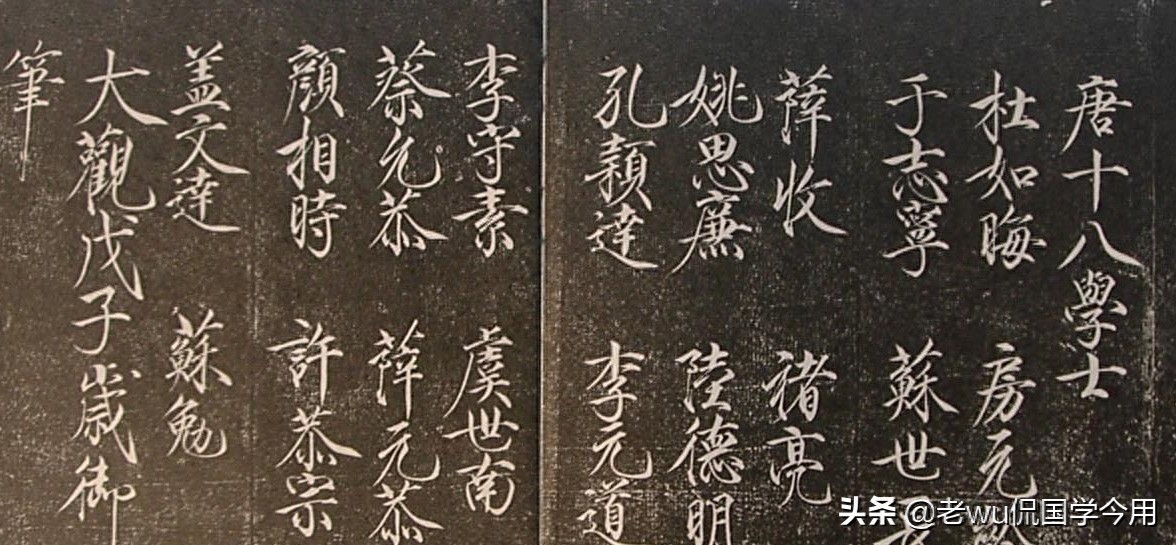 唐十八學士
杜如晦 房元
于志寧 蘇世
薛收 褚亮
姚思廉 陸德明
孔穎達 李元道
李守素 虞世南
蔡允恭 薛元恭
顏相時 許恭宗
盖文達 蘇勉
大觀戊子歲御
筆
头条 @老wu侃国学今用